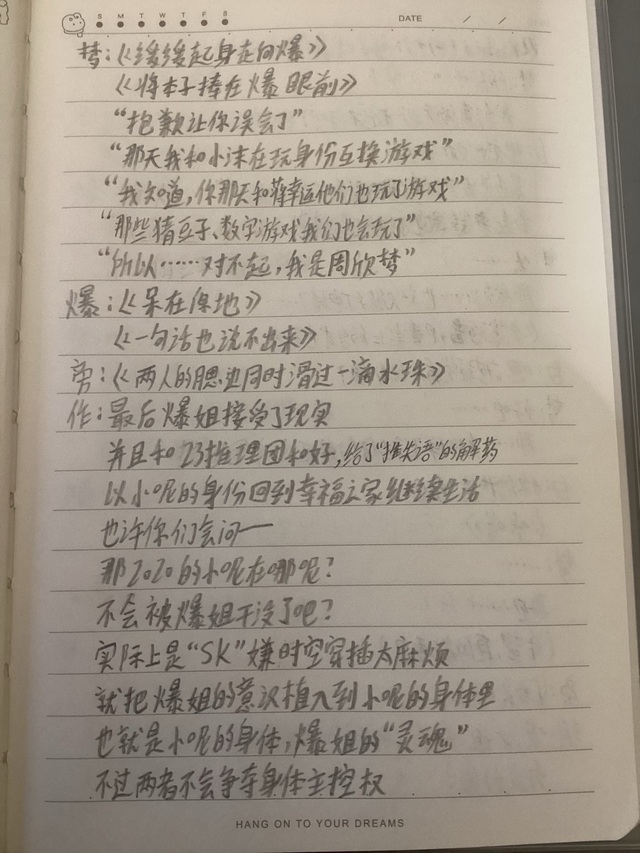 S M T W T F S
DATE / /
梦:《缓缓起身走向爆》
《将本子捧在爆眼前》
“抱歉让你误会了”
“那天我和小沫在玩身份互换游戏”
“我知道,你那天和薛幸运他们也玩了游戏”
“那些猜豆子、数字游戏我们也会玩了”
“所以……对不起,我是周欣梦”
爆:《呆在原地》
《一句话也说不出来》
旁:《两人的腮边同时滑过一滴水珠》
作:最后爆姐接受了现实
并且和23推理团和好,给了“失语”的解药
以小呢的身份回到幸福之家继续生活
也许你们会问一
那2020的小呢在哪呢?
不会被爆姐干没了吧?
实际上是“SK”嫌时空穿插太麻烦
就把爆姐的意识植入到小呢的身体里
也就是小呢的身体,爆姐的“灵魂”
不过两者不会争夺身体主控权
HANG ON TO YOUR DREAMS